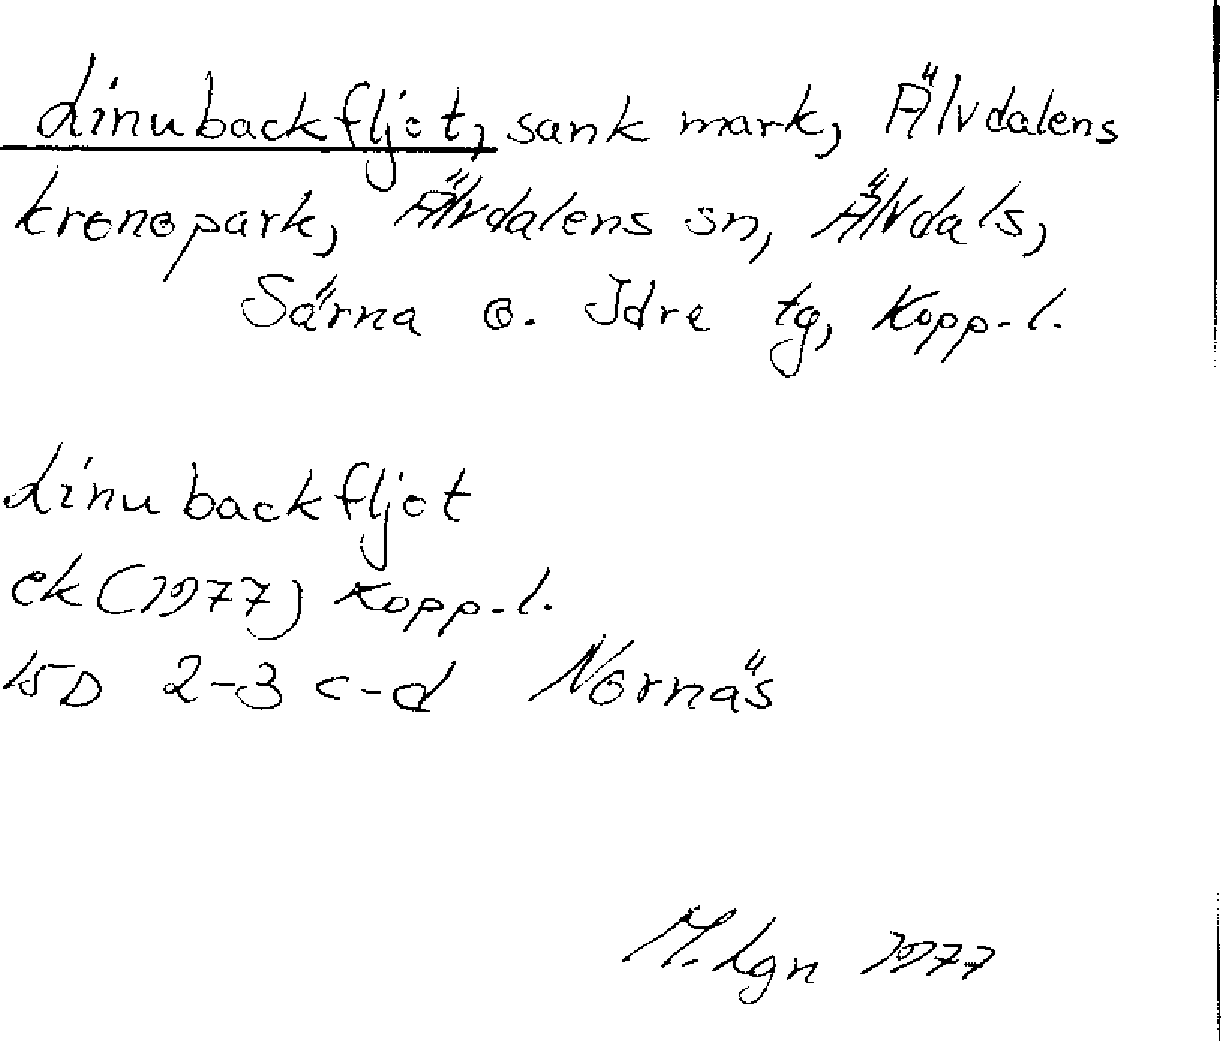 Linubackfljot, sank mark, Älvdalens
kronopark, Älvdalens sn, Älvdals,
Särna o. Idre tg, Kopp-l.
Linubackfljot
ek (1977) Kopp-l.
15D 2-3 c-d Nornäs
M. Lgn 1977